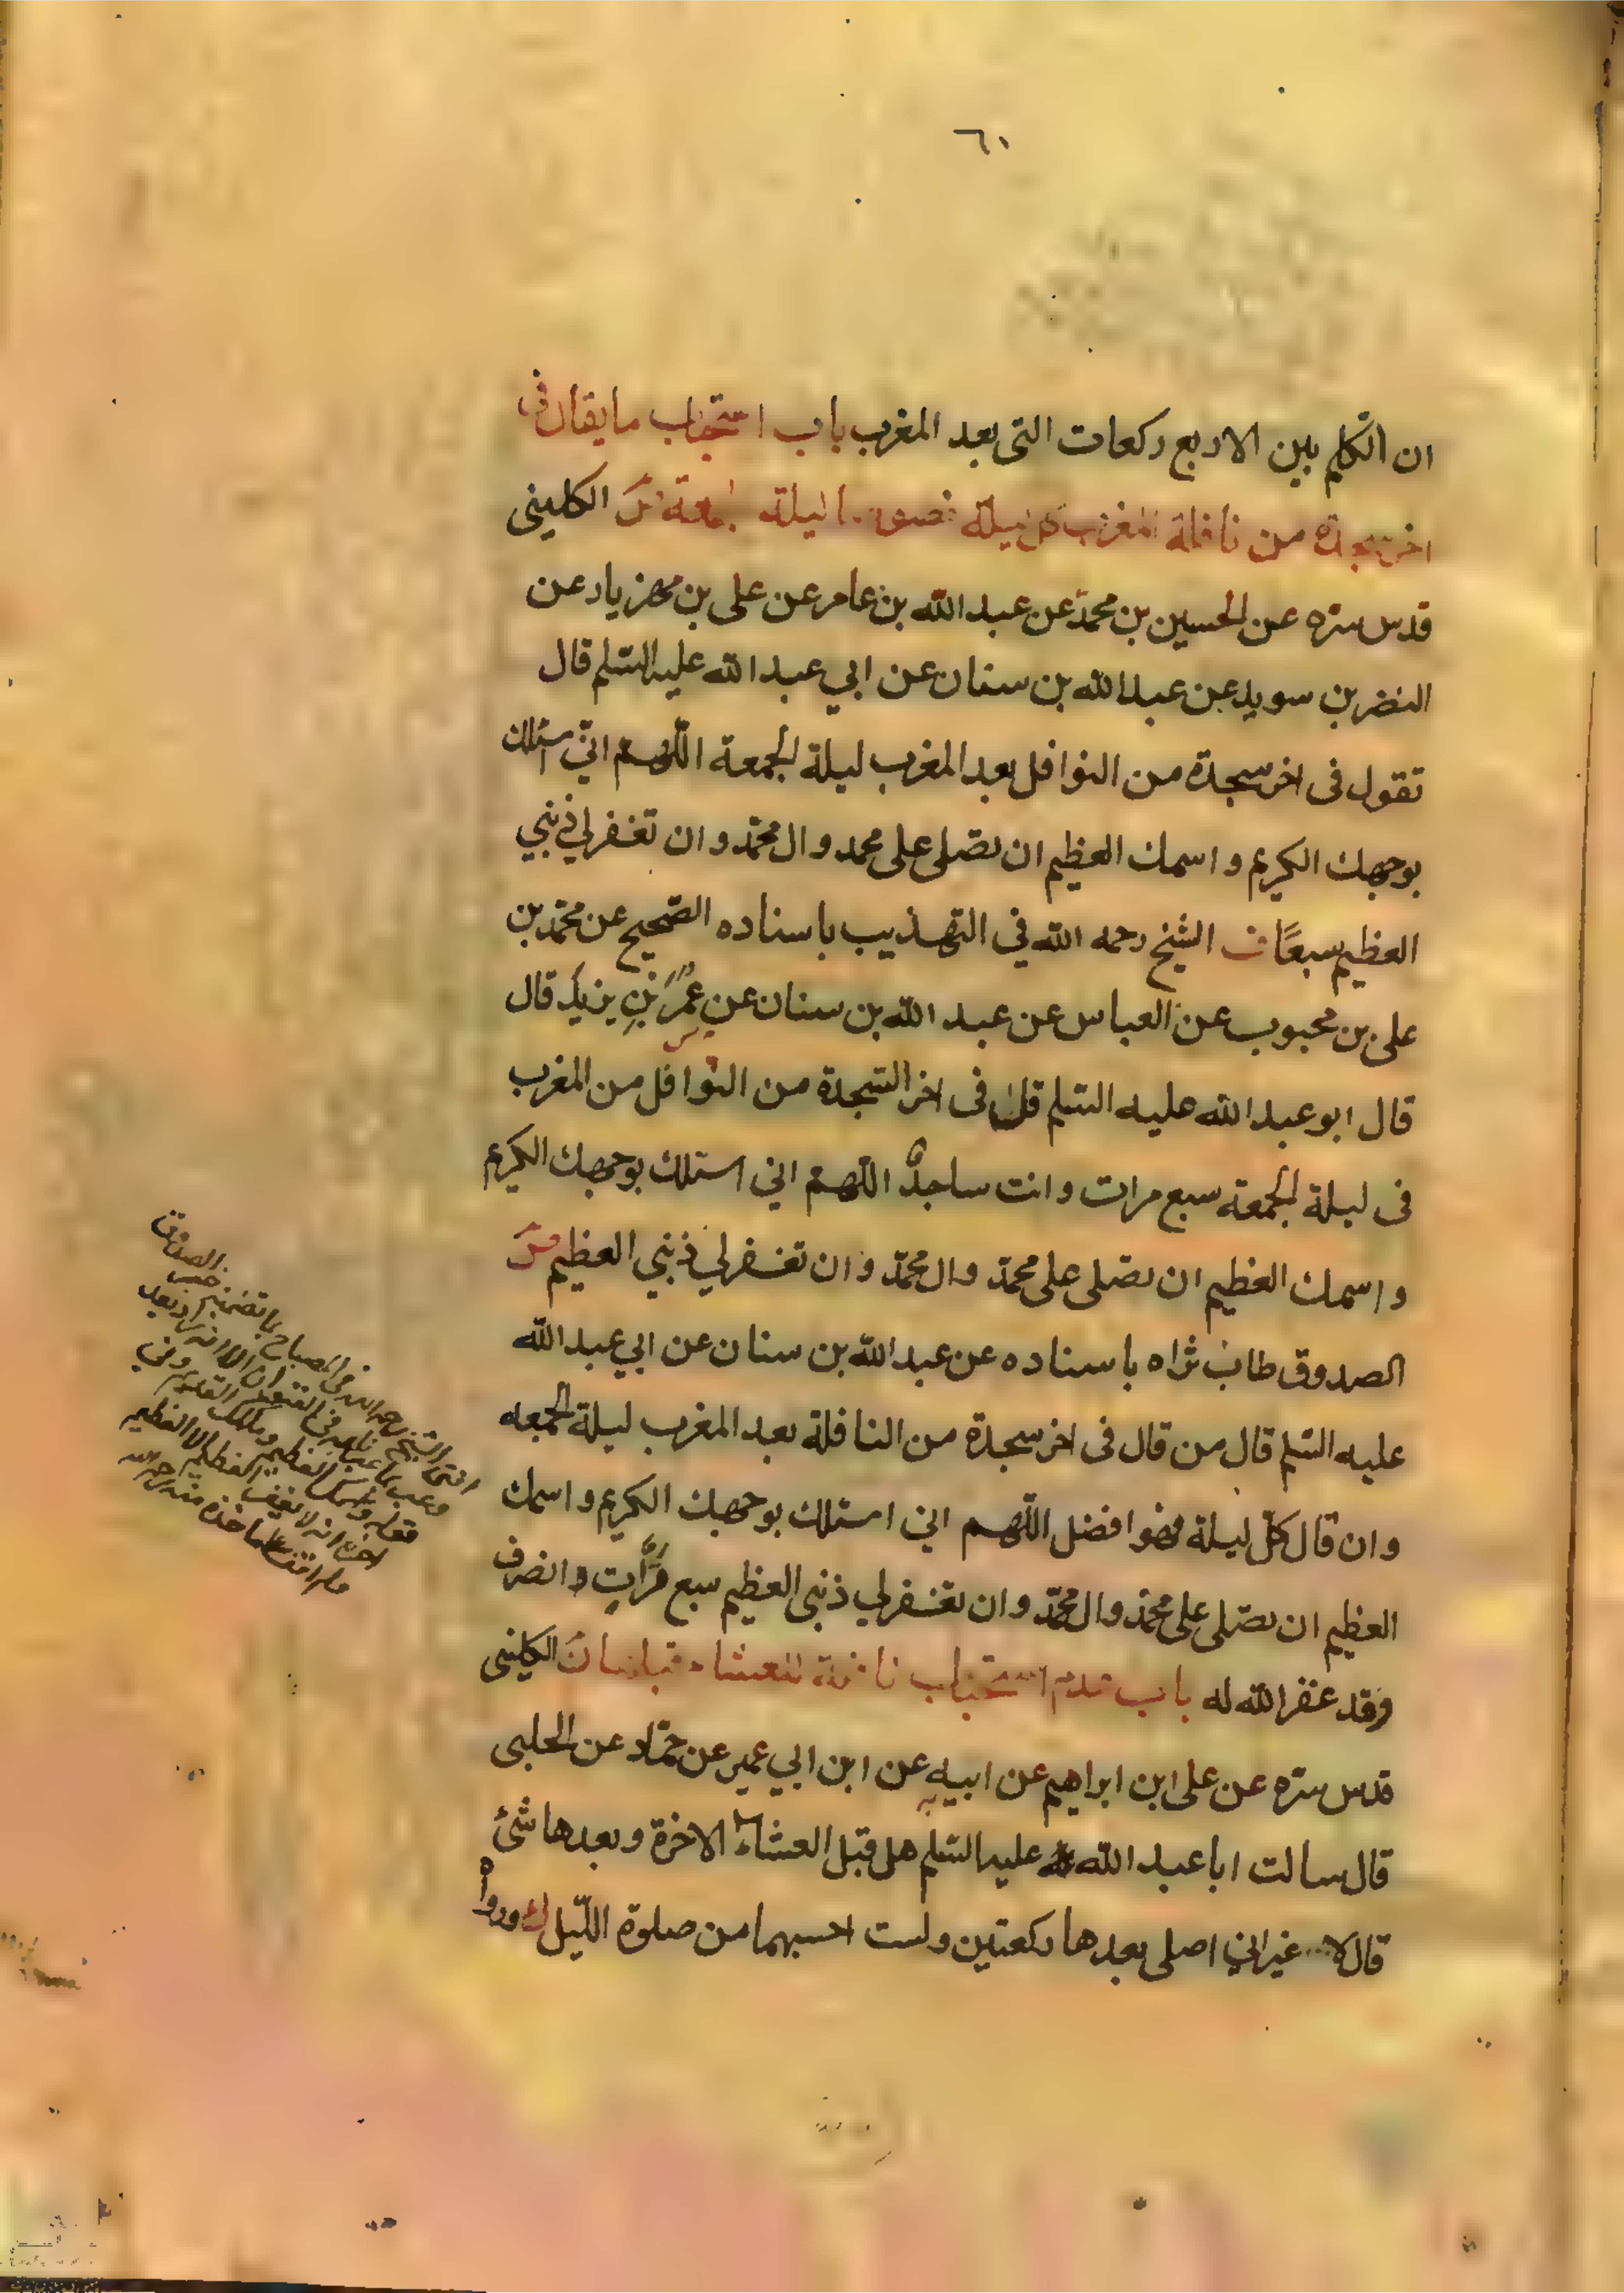 ٦٠
ان اتكلم بين الاربع ركعات التى بعد المغرب باب استحباب ما يقال فى
اخر سجدة من نافلة المغرب كل ليلة ليلة الكلينى
قدس سره عن الحسين بن محمد عن عبد الله بن عامر عن على بن مهزيار عن
النضر بن سويد عن عبد الله بن سنان عن ابي عبد الله عليه السلم قال
تقول فى اخر سجدة من النوافل بعد المغرب ليلة الجمعة اللهم اني اسئلك
بوجهك الكريم و اسمك العظيم ان تصلى على محمد و ال محمد و ان تغفر لي ذنبي
العظيم سبعًا ف الشيخ رحمه الله في التهذيب باسناده الصحيح عن محمد بن
على بن محبوب عن العباس عن عبد الله بن سنان عن عمر بن يزيد قال
قال ابو عبد الله عليه السلم قل فى اخر السجدة من النوافل من المغرب
فى ليلة الجمعة سبع مرات و انت ساجدٌ اللهم اني اسئلك بوجهك الكريم
و اسمك العظيم ان تصلى على محمد وال محمد وان تغفر لي ذنبي العظيم
الصدوق طاب ثراه باسناده عن عبد الله بن سنان عن ابي عبد الله
عليه السلم قال من قال فى اخر سجدة من النافلة بعد المغرب ليلة الجمعه
وان قال كل ليلة فهو افضل اللهم اني اسئلك بوجهك الكريم و اسمك
العظيم ان تصلى على محمد وال محمد وان تغفر لي ذنبى العظيم سبع مرات انصرف
وقد غفر الله له باب عدم استحباب نافلة للعشاء قبلها الكلينى
قدس سره عن على ابن ابراهيم عن ابيه عن ابن ابي عمير عن حماد عن الحلبى
قال سالت ابا عبد الله عليه السلم هل قبل العشاء الاخرة و بعدها شئ
قال لا غير اني اصلى بعدها ركعتين ولست احسبهما من صلوة الليل ورواه
افتى الشيخ رحمه الله فى المصباح بما تضمنه الصدوق
العظيم